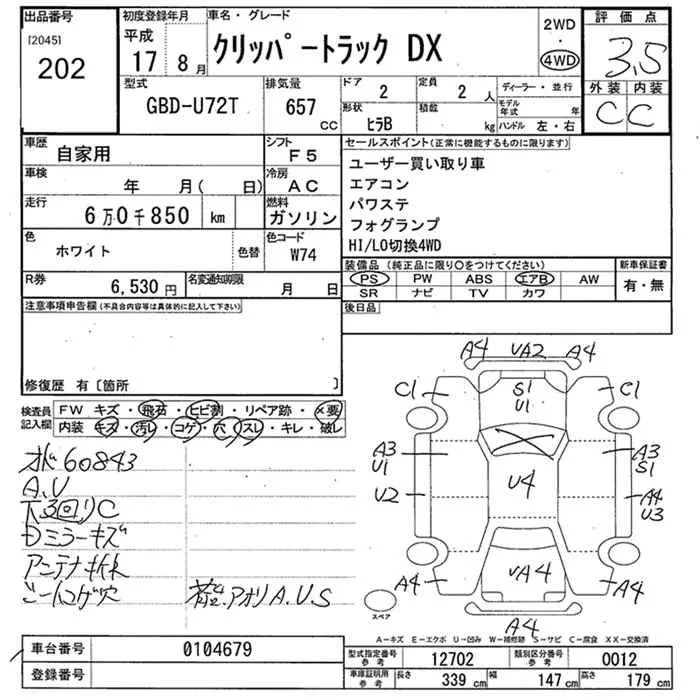 出品番号
[2045]
202
初度登録年月
平成
17 8月
車名・グレード
クリッパートラック DX
2WD
・
4WD
評価点
3.5
外装 内装
C C
型式
GBD-U72T
排気量
657 CC
ドア
2
定員
2 人
形状
ヒラB
積載
kg
ディーラー・並行
モデル年式 年
ハンドル 左・右
車歴
自家用
シフト
F5
車検
年 月( 日)
冷房
AC
走行
6万0千850 km
燃料
ガソリン
色
ホワイト
色替
色コード
W74
R券
6,530円
名変通知期限
月 日
セールスポイント(正常に機能するものに限ります)
ユーザー買い取り車
エアコン
パワステ
フォグランプ
HI/LO切換4WD
装備品(純正品に限り○をつけてください)
PS PW ABS エアB AW
SR ナビ TV カワ
新車保証書
有・無
後日品
注意事項申告欄(不具合内容等は具体的に記入して下さい)
修復歴 有〔箇所 〕
検査員記入欄
FW キズ・飛石・ヒビ割・リペア跡・×要
内装 キズ・汚レ・コゲ・穴・スレ・キレ・破レ
60843
A.U
下回りC
Dミラーキズ
アンテナ
アオリA.U.S
A4 UA2 A4
C1 S1 U1 C1
A3 U1 A3 S1
U2 U4 A4 U3
A4 UA4 A4
A4
スペア
A-キズ E-エクボ U-凹み W-補修跡 S-サビ C-腐食 XX-交換済
車台番号
0104679
登録番号
型式指定番号 参考
12702
類別区分番号 参考
0012
車庫証明用 参考
長さ 339 cm 幅 147 cm 高さ 179 cm